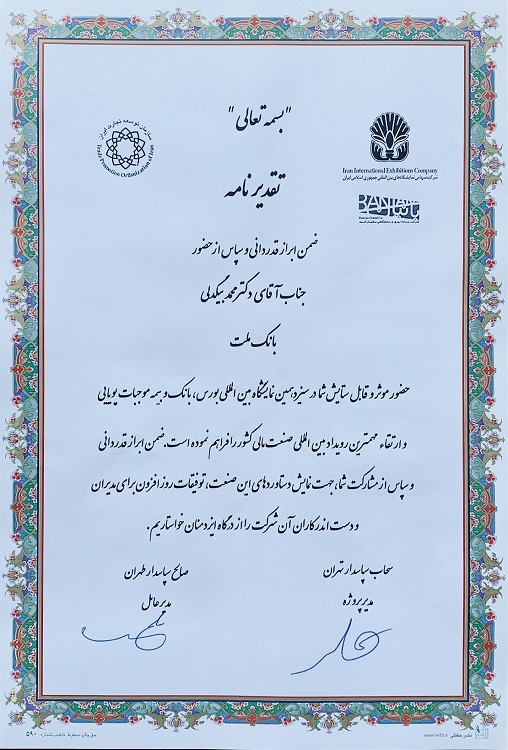 "بسمه تعالی"
سازمان توسعه تجارت ایران
Trade Promotion Organization of Iran
Iran International Exhibitions Company
شرکت سهامی نمایشگاه‌های بین المللی جمهوری اسلامی ایران
BANIAN
بانیان
تقدیر نامه
ضمن ابراز قدردانی و سپاس از حضور
جناب آقای دکتر محمد بیگدلی
بانک ملت
حضور موثر و قابل ستایش شما در سیزدهمین نمایشگاه بین المللی بورس، بانک و بیمه موجبات پویایی
و ارتقاء مهمترین رویداد بین المللی صنعت مالی کشور را فراهم نموده است. ضمن ابراز قدردانی
و سپاس از مشارکت شما، جهت نمایش دستاوردهای این صنعت، توفیقات روز افزون برای مدیران
و دست اندرکاران آن شرکت را از درگاه ایزد منان خواستاریم.
سحاب سپاسدار تهران
مدیر پروژه
صالح سپاسدار طهران
مدیر عامل
نشر حفظی www.hefzi.ir
حق چاپ محفوظ. تذهیب شماره: ۵۹۰